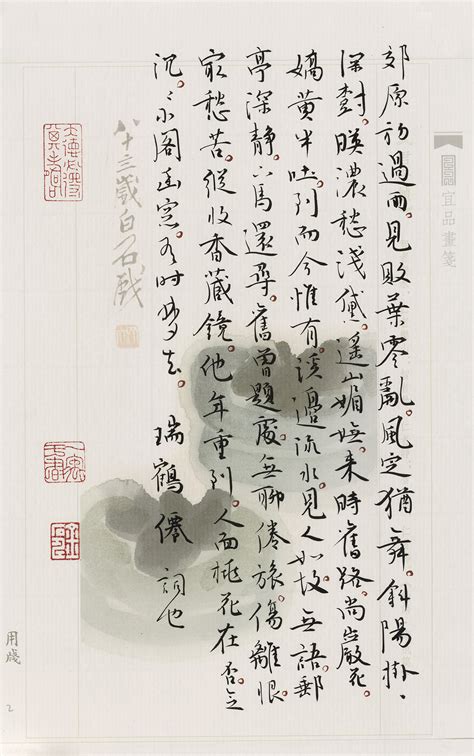 郊原初過雨。見敗葉零亂。風定猶舞。斜陽掛、
深樹。映濃愁淺黛。遙山媚嫵。來時舊路。尚巖花。
嬌黃半吐。到而今惟有。溪邊流水。見人如故。無語。郵
亭深靜。下馬還尋。舊曾題處。無聊倦旅。傷離恨。
最愁苦。縱收香藏鏡。他年重到。人面桃花在否。念
沉〻小閣幽窗。有時夢去。瑞鶴僊 詞也
宜品畫箋
八十三歲白石戲
用箋
2